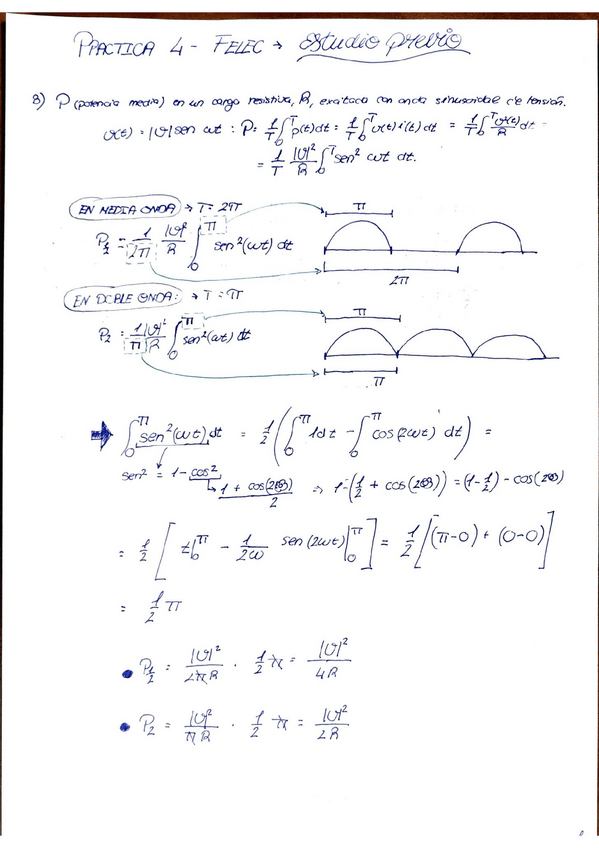 PRACTICA 4 - FELEC → estudio previo
8) P (potencia media) en un carga resistiva, R, exitada con onda sinusoidal de tensión.
v(t) = |V| sen ωt : P = 1/T ∫₀ᵀ p(t) dt = 1/T ∫₀ᵀ v(t) i(t) dt = 1/T ∫₀ᵀ v²(t)/R dt =
= 1/T |V|²/R ∫₀ᵀ sen² ωt dt.
EN MEDIA ONDA → T = 2π
π
P½ = 1/2π |V|²/R ∫₀^π sen²(ωt) dt
2π
EN DOBLE ONDA: → T = π
π
P₂ = 1/π |V|²/R ∫₀^π sen²(ωt) dt
π
→ ∫₀^π sen²(ωt) dt = 1/2 ( ∫₀^π 1dt - ∫₀^π cos(2ωt) dt ) =
sen² = 1 - cos²
↳ 1 + cos(2θ) / 2 ⇒ 1 - (1/2 + cos(2θ)) = (1 - 1/2) - cos(2θ)
= 1/2 [ t|₀^π - 1/2ω sen(2ωt)|₀^π ] = 1/2 [(π-0) + (0-0)]
= 1/2 π
• P½ = |V|²/2πR · 1/2 π = |V|²/4R
• P₂ = |V|²/πR · 1/2 π = |V|²/2R